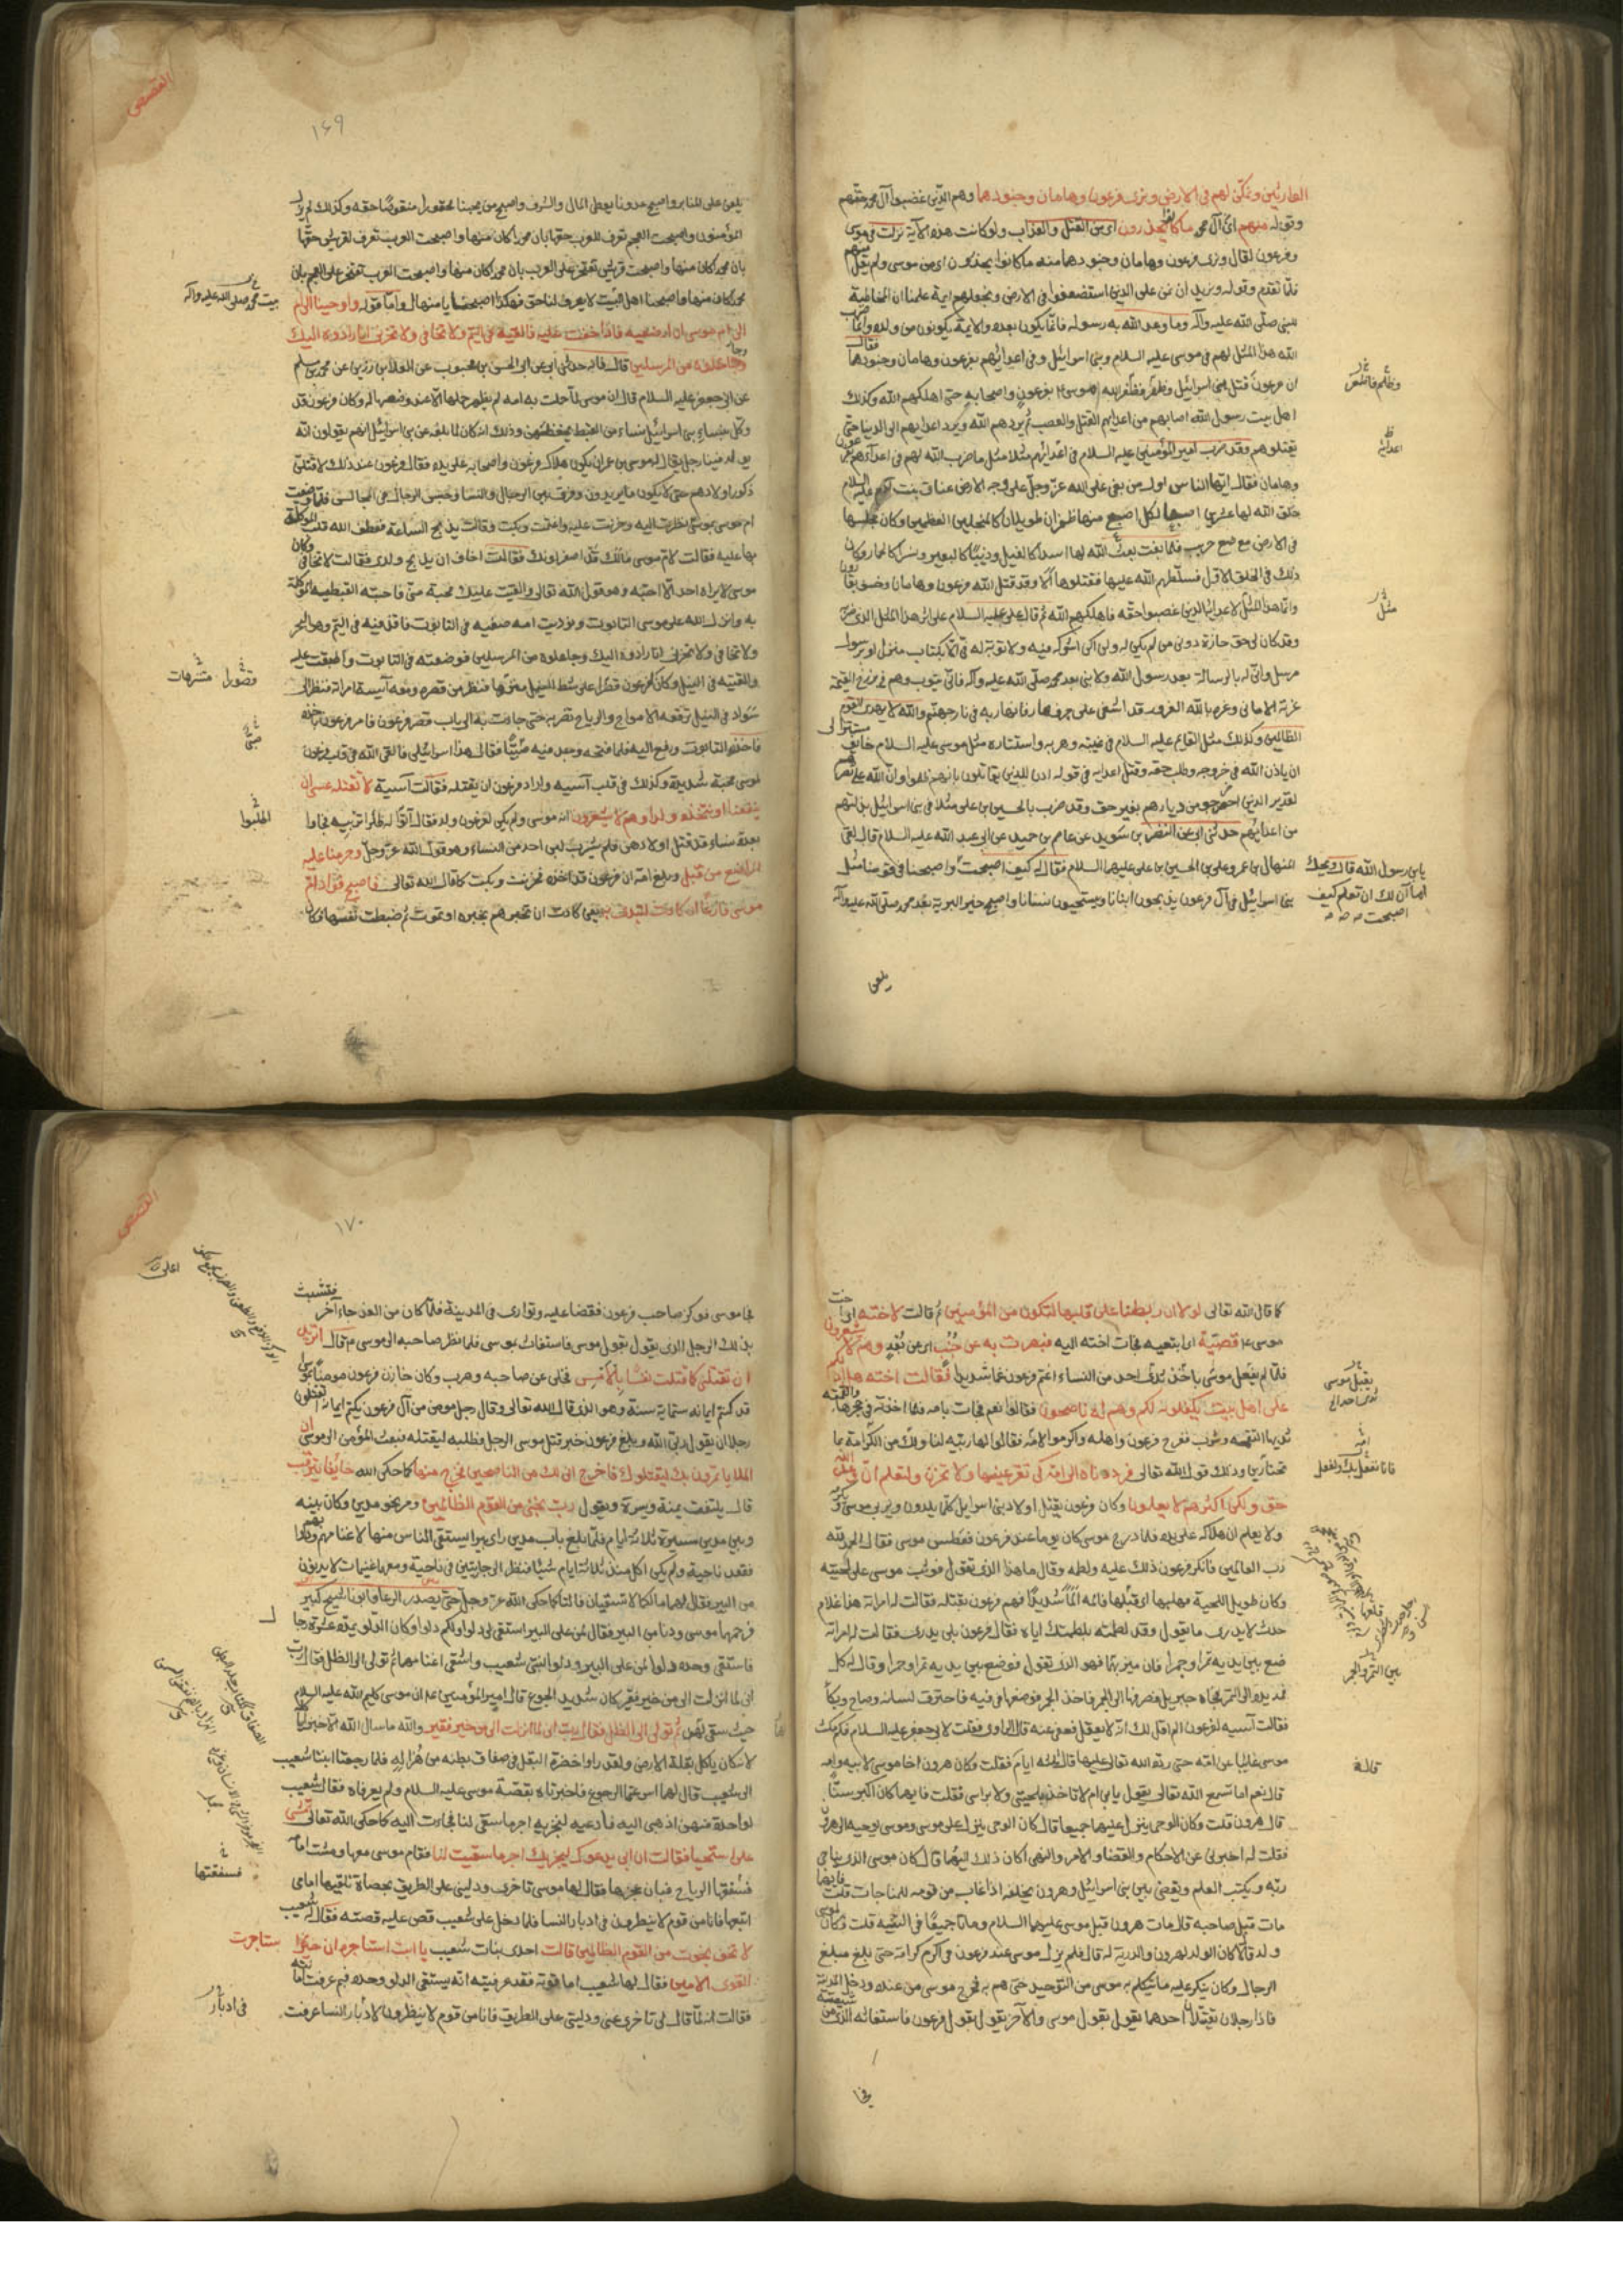 الظاهرين ونمكن لهم في الارض ونرى فرعون وهامان وجنودهما وهم الذين غصبوا آل محمد حقهم
وقوله منهم اي آل محمد ما كانوا يحذرون اي من القتل والعذاب ولو كانت هذه الآية نزلت في موسى
وفرعون لقال ونرى فرعون وهامان وجنودهما منه ما كانوا يحذرون اي من موسى ولم يقل منهم
فلما تقدم قوله ونريد ان نمن على الذين استضعفوا في الارض ونجعلهم ايمة علمنا ان المخاطبة
للنبي صلى الله عليه وآله وما وعد الله به رسوله فانما يكون بعده والايمة يكونون من ولده وانما ضرب
الله هذا المثل لهم في موسى عليه السلام وبني اسرائيل وفي اعدائهم بفرعون وهامان وجنودهما فقال
ان فرعون قتل بني اسرائيل وظفر فظفر الله موسى بفرعون واصحابه حتى اهلكهم الله وكذلك
اهل بيت رسول الله اصابهم من اعدائهم القتل والغصب ثم يردهم الله ويرد اعدائهم الى الدنيا حتى
يقتلوهم وقد ضرب امير المؤمنين عليه السلام في اعدائهم مثلا مثل ما ضرب الله لهم في اعدائهم بفرعون
وهامان فقال ايها الناس اول من بغى على الله عز وجل على وجه الارض عناق بنت آدم عليه السلام
خلق الله لها عشرين اصبعا لكل اصبع منها ظفران طويلان كالمنجلين العظيمين وكان مجلسها
في الارض موضع جريب فلما بغت بعث الله لها اسدا كالفيل وذئبا كالبعير ونسرا كالحمار وكان
ذلك في الخلق الاول فسلطهم الله عليها فقتلوها الا وقد قتل الله فرعون وهامان وخسف بقارون
وانما هذا المثل لاعدائه الذين غصبوا حقه فاهلكهم الله ثم قال علي عليه السلام على اثر هذا المثل الذي ضربه
وقد كان لي حق حازه دوني من لم يكن له ولم اكن اشركه فيه ولا توبة له الا بكتاب منزل او برسول
مرسل واني له بالرسالة بعد رسول الله ولا نبي بعد محمد صلى الله عليه وآله فاني يتوب وهم في برزخ القيمة
غرته الاماني وغره بالله الغرور قد اشفى على جرف هار فانهار به في نار جهنم والله لا يهدي القوم
الظالمين وكذلك مثل القائم عليه السلام في غيبته وهربه واستتاره مثل موسى عليه السلام خائف مستتر الى
ان ياذن الله في خروجه وطلب حقه وقتل اعدائه في قوله اذن للذين يقاتلون بانهم ظلموا وان الله على نصرهم
لقدير الذين اخرجوا من ديارهم بغير حق وقد ضرب بالحسين بن علي مثلا في بني اسرائيل بذلتهم
من اعدائهم حدثني ابي عن النضر بن سويد عن عاصم بن حميد عن ابي عبد الله عليه السلام قال لقي
المنهال بن عمرو علي بن الحسين بن علي عليهما السلام فقال له كيف اصبحت واصبحنا في قومنا مثل
بني اسرائيل في آل فرعون يذبحون ابنائنا ويستحيون نسائنا واصبح خير البرية بعد محمد صلى الله عليه وآله
يلعن
مثل
يابن رسول الله قال ويحك
اما آن لك ان تعلم كيف
اصبحت
القصص
١٦٩
يلعن على المنابر واصبح عدونا يعطى المال والشرف واصبح من يحبنا محقورا منقوصا حقه وكذلك لم يزل
المؤمنون واصبحت العجم تعرف للعرب حقها بان محمدا كان منها واصبحت العرب تعرف لقريش حقها
بان محمد كان منها واصبحت قريش تفتخر على العرب بان محمد كان منها واصبحت العرب تفتخر على العجم بان
محمد كان منها واصبحنا اهل البيت لا يعرف لنا حق فهكذا اصبحنا يا منهال واما قوله واوحينا
الى ام موسى ان ارضعيه فاذا خفت عليه فالقيه في اليم ولا تخافي ولا تحزني انا رادوه اليك
وجاعلوه من المرسلين قال فانه حدثني ابي عن الحسن بن محبوب عن العلا بن رزين عن محمد بن مسلم
عن ابي جعفر عليه السلام قال ان موسى لما حملت به امه لم يظهر حملها الا عند وضعها له وكان فرعون قد
وكل بنساء بني اسرائيل نساء من القبط يحفظنهن وذلك انه كان لما بلغه عن بني اسرائيل انهم يقولون انه
يولد فينا رجل يقال له موسى بن عمران يكون هلاك فرعون واصحابه على يده فقال فرعون عند ذلك لاقتلن
ذكور اولادهم حتى لا يكون ما يريدون وفرق بين الرجال والنساء وحبس الرجال في المحابس فلما وضعت
ام موسى بموسى نظرت اليه وحزنت عليه واغتمت وبكت وقالت يذبح الساعة فعطف الله قلب الموكلة
بها عليه فقالت لام موسى مالك قد اصفر لونك فقالت اخاف ان يذبح ولدي فقالت لا تخافي وكان
موسى لا يراه احد الا احبه وهو قول الله تعالى والقيت عليك محبة مني فاحبته القبطية الموكلة
به وانزل الله على موسى التابوت ونوديت امه ضعيه في التابوت فاقذفيه في اليم وهو البحر
ولا تخافي ولا تحزني انا رادوه اليك وجاعلوه من المرسلين فوضعته في التابوت واطبقت عليه
والقته في النيل وكان لفرعون قصرا على شط النيل متنزها فنظر من قصره ومعه آسية امراته فنظر الى
سواد في النيل ترفعه الامواج والرياح تضربه حتى جاءت به الى باب قصر فرعون فامر فرعون باخذه
فاخذ التابوت ورفع اليه فلما فتحه وجد فيه صبيا فقال هذا اسرائيلي فالقى الله في قلب فرعون
لموسى محبة شديدة وكذلك في قلب آسية واراد فرعون ان يقتله فقالت آسية لا تقتله عسى ان
ينفعنا او نتخذه ولدا وهم لا يشعرون انه موسى ولم يكن لفرعون ولد فقال ائتوا له ظئرا تربيه فجاوا
بعدة نساء قد قتل اولادهن فلم يشرب لبن احد من النساء وهو قول الله عز وجل وحرمنا عليه
المراضع من قبل وبلغ امه ان فرعون قد اخذه فحزنت وبكت كما قال الله تعالى فاصبح فؤاد ام
موسى فارغا ان كادت لتبدي به يعني كادت ان تخبرهم بخبره او تموت ثم ضبطت نفسها فكان
بيت محمد صلى الله عليه وآله
قصورا متنزهات
اطلبوا
كما قال الله تعالى لولا ان ربطنا على قلبها لتكون من المؤمنين ثم قالت لاخته اي اخت
موسى قصيه اي اتبعيه فجاءت اخته اليه فبصرت به عن جنب اي عن بعد وهم لا يشعرون
فلما لم يقبل موسى ياخذ ثدي احد من النساء اغتم فرعون غما شديدا فقالت اخته هل ادلكم
على اهل بيت يكفلونه لكم وهم له ناصحون فقالوا نعم فجاءت بامه فلما اخذته في حجرها والقمته
ثديها التقمه وشرب ففرح فرعون واهله واكرموا امه فقالوا لها ربيه لنا ولك من الكرامة ما
تختارين وذلك قول الله تعالى فرددناه الى امه كي تقر عينها ولا تحزن ولتعلم ان وعد الله
حق ولكن اكثرهم لا يعلمون وكان فرعون يقتل اولاد بني اسرائيل كلما يلدون ويربي موسى ويكرمه
ولا يعلم ان هلاكه على يده فلما درج موسى كان يوما عند فرعون فعطس موسى فقال الحمد لله
رب العالمين فانكر فرعون ذلك عليه ولطمه وقال ما هذا الذي تقول فوثب موسى على لحيته
وكان طويل اللحية فهلبها اي قلعها فالمه الما شديدا فهم فرعون بقتله فقالت له امراته هذا غلام
حدث لا يدري ما يقول وقد لطمته بلطمتك اياه فقال فرعون بلى يدري فقالت له امراته
ضع بين يديه تمرا وجمرا فان ميز بينهما فهو الذي تقول فوضع بين يديه تمرا وجمرا وقال له كل
فمد يده الى التمر فجاء جبريل فصرفها الى الجمر فاخذ الجمر فوضعها في فيه فاحترق لسانه وصاح وبكا
فقالت آسية لفرعون الم اقل لك انه لا يعقل فعفى عنه قال الراوي فقلت لابي جعفر عليه السلام فكم مكث
موسى غايبا عن امه حتى رده الله تعالى عليها قال ثلثة ايام فقلت وكان هرون اخا موسى لابيه وامه
قال نعم اما تسمع الله تعالى يقول يابن ام لا تاخذ بلحيتي ولا براسي فقلت فايهما كان اكبر سنا
قال هرون قلت وكان الوحي ينزل عليهما جميعا قال كان الوحي ينزل على موسى وموسى يوحيه الى هرون
فقلت له اخبرني عن الاحكام والقضا والامر والنهي اكان ذلك اليهما قال كان موسى الذي يناجي
ربه ويكتب العلم ويقضي بين بني اسرائيل وهرون يخلفه اذا غاب من قومه للمناجات قلت فايهما
مات قبل صاحبه قال مات هرون قبل موسى عليهما السلام وماتا جميعا في التيه قلت وكان لموسى
ولد قال لا كان الولد لهرون والذرية له قال فلم يزل موسى عند فرعون في اكرم كرامة حتى بلغ مبلغ
الرجال وكان ينكر عليه ما يتكلم به موسى من التوحيد حتى هم به فخرج موسى من عنده ودخل المدينة
فاذا رجلان يقتتلان احدهما يقول بقول موسى والآخر يقول بقول فرعون فاستغاثه الذي من شيعته
فجا
يقبل موسى
بين التمر والجمر
قال
القصص
١٧٠
فجا موسى فوكز صاحب فرعون فقضا عليه وتوارى في المدينة فلما كان من الغد جاء آخر فتشبث
بذلك الرجل الذي يقول بقول موسى فاستغاث بموسى فلما نظر صاحبه الى موسى قال اتريد
ان تقتلني كما قتلت نفسا بالامس فخلى عن صاحبه وهرب وكان خازن فرعون مومنا بموسى
قد كتم ايمانه ستماية سنة وهو الذي قال الله تعالى وقال رجل مومن من آل فرعون يكتم ايمانه اتقتلون
رجلا ان يقول ربي الله وبلغ فرعون خبر قتل موسى الرجل فطلبه ليقتله فبعث المؤمن الى موسى ان
الملا ياتمرون بك ليقتلوك فاخرج اني لك من الناصحين فخرج منها كما حكى الله خائفا يترقب
قال يلتفت يمنة ويسرة ويقول رب نجني من القوم الظالمين ومر نحو مدين وكان بينه
وبين مدين مسيرة ثلاثة ايام فلما بلغ باب مدين راى بيرا يستقي الناس منها لاغنامهم ودوابهم
فقعد ناحية ولم يكن اكل منذ ثلاثة ايام شيئا فنظر الى جاريتين في ناحية ومعهما غنيمات لا يدنون
من البير فقال لهما مالكما لا تستقيان فقالتا كما حكى الله عز وجل حتى يصدر الرعاء وابونا شيخ كبير
فرحمهما موسى ودنا من البير فقال لمن على البير استقي لي دلوا ولكم دلوا وكان الدلو يمده عشرة رجال
فاستقى وحده دلوا لمن على البير ودلوا لبنتي شعيب واسقى اغنامهما ثم تولى الى الظل فقال رب
اني لما انزلت الي من خير فقير كان شديد الجوع قال امير المؤمنين ان موسى كليم الله عليه السلام
حيث سقى لهن ثم تولى الى الظل فقال رب اني لما انزلت الي من خير فقير والله ما سال الله الا خبزا
لانه كان ياكل بقلة الارض ولقد راوا خضرة البقل في صفاق بطنه من هزاله فلما رجعتا ابنتا شعيب
الى شعيب قال لهما اسرعتما الرجوع فاخبرتاه بقصة موسى عليه السلام ولم يعرفاه فقال شعيب
لواحدة منهن اذهبي اليه فادعيه لنجزيه اجر ما سقى لنا فجاءت اليه كما حكى الله تعالى تمشي
على استحيا فقالت ان ابي يدعوك ليجزيك اجر ما سقيت لنا فقام موسى معها ومشت امامه
فسفقتها الرياح فبان عجزها فقال لها موسى تاخري ودليني على الطريق بحصاة تلقيها امامي
اتبعها فانا من قوم لا ينظرون في ادبار النسا فلما دخل على شعيب قص عليه قصته فقال له شعيب
لا تخف نجوت من القوم الظالمين قالت احدى بنات شعيب يا ابت استاجره ان خير من استاجرت
القوي الامين فقال لها شعيب اما قوته فقد عرفتيه انه يستقي الدلو وحده فبم عرفت امانته
فقالت انه لما قال لي تاخري عني ودليني على الطريق فانا من قوم لا ينظرون لادبار النسا عرفت
فسفقتها
في ادبار